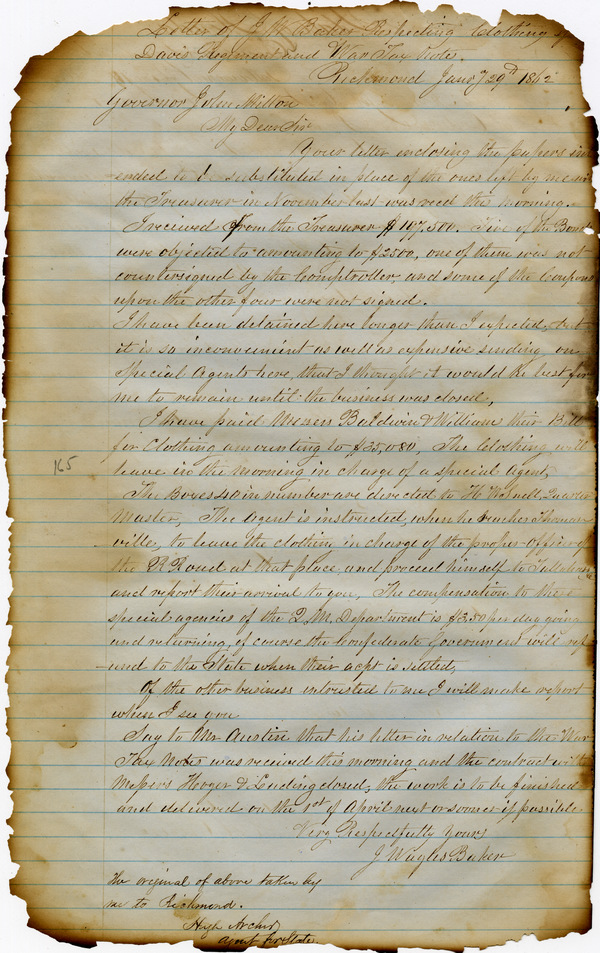 Letter of J W Baker Respecting Clothing of
Davis Regiment and War Tax Note.
Richmond Jany 29th 1862
Governor John Milton
My Dear Sir
Your letter inclosing the papers in
ended to be substituted in place of the ones left by me with
the Treasurer in November last was recd this morning.
I received from the Treasurer $197,500. Five of the Bonds
were objected to amounting to $2500, one of them was not
countersigned by the Comptroller, and some of the Coupons
upon the other four were not signed.
I have been detained here longer than I expected, but
it is so inconvenient as well as expensive sending on
Special Agents here, that I thought it would be best for
me to remain until the business was closed,
I have paid Messrs Baldwin & William their Bill
for Clothing amounting to $35,080, The Clothing will
leave in the morning in charge of a special Agent,
165
The Boxes 40 in number are directed to H. W. Quarter
Master, The Agent is instructed, when he reaches Thomas
ville, to leave the clothing in charge of the proper officer of
the R Road at that place and proceed himself to
and report their arrival to you, The compensation to these
special agencies of the Q. M. Department is $3.50 per day going
and returning, of course the Confederate Government will ref
und to the State when their acpt is settled,
Of the other business intrusted to me I will make report
when I see you
Say to Mr Austin that his letter in relation to the War
Tax Notes was received this morning and the contract with
Messers Hoyer & Ludwig closed, the work is to be finished
and delivered on the 1st of April next or sooner if possible
Very Respectfully Yours
J Wayles Baker
the original of above taken by
me to Richmond.
Hugh Archer
Agent for State.